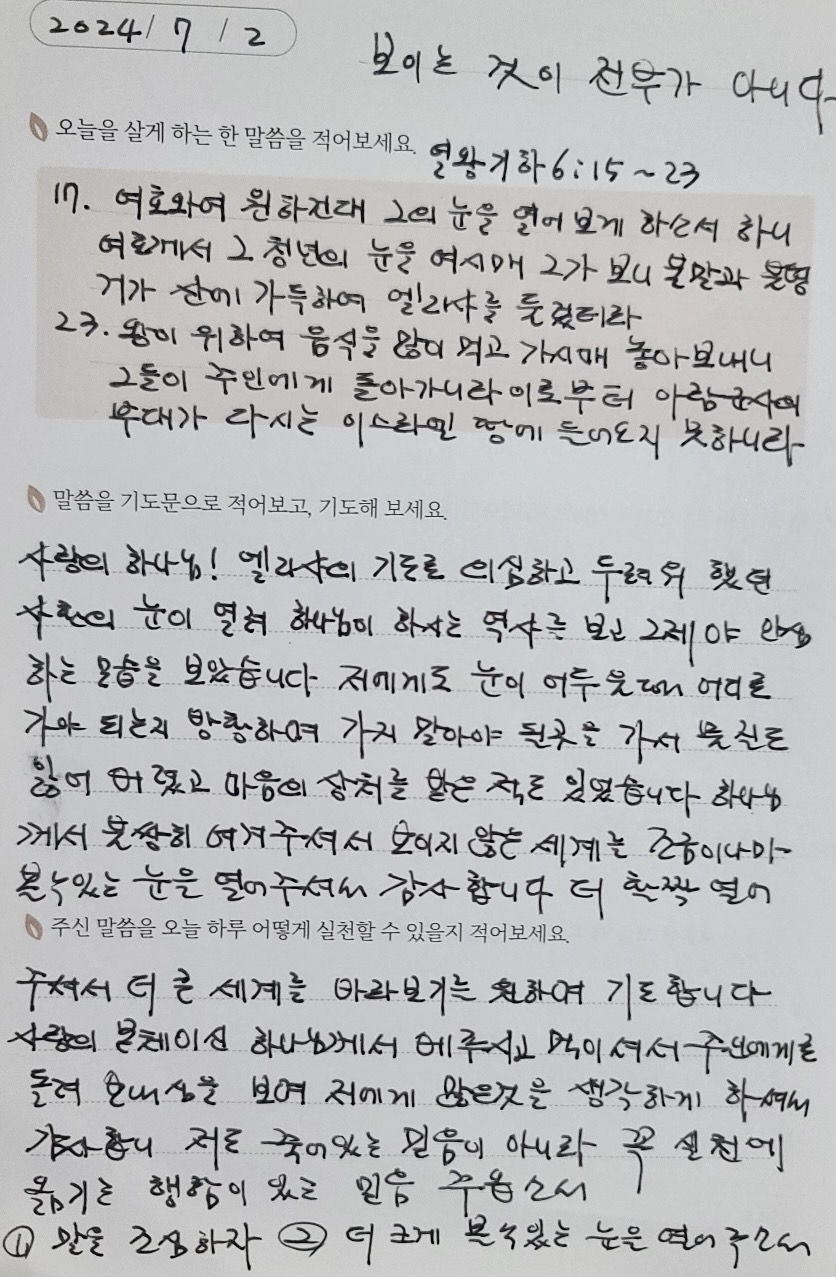 2024/ 7 / 2
보이는 것이 전부가 아니다
오늘을 살게 하는 한 말씀을 적어보세요.
열왕기하 6:15~23
17. 여호와여 원하건대 그의 눈을 열어 보게 하소서 하니
여호께서 그 청년의 눈을 여시매 그가 보니 불말과 불병
거가 산에 가득하여 엘리사를 둘렀더라
23. 왕이 위하여 음식을 많이 먹고 가시매 놓아보내니
그들이 주인에게 돌아가니라 이로부터 아람 군사의
부대가 다시는 이스라엘 땅에 들어오지 못하니라
말씀을 기도문으로 적어보고, 기도해 보세요.
사랑의 하나님! 엘리사의 기도로 의심하고 두려워 했던
사환의 눈이 열려 하나님이 하시는 역사를 보고 그제야 안심
하는 모습을 보았습니다 저에게도 눈이 어두웟 어디로
가야 되는지 방황하며 가지 말아야 될곳을 가서 물질도
잃어 버렸고 마음의 상처를 받은 적도 있었습니다 하나님
께서 불쌍히 여겨주셔서 보이지 않는 세계를 조금이나마
볼수있는 눈을 열어주셔서 감사합니다 더 활짝 열어
주신 말씀을 오늘 하루 어떻게 실천할 수 있을지 적어보세요.
주셔서 더 큰 세계를 바라보기를 원하여 기도합니다
사랑의 본체이신 하나님께서 베푸시고 먹이셔서 주인에게로
돌려 보내심을 보여 저에게 많은것을 생각하게 하셔서
감사합니 저도 죽어있는 믿음이 아니라 꼭 실천에
옮기는 행함이 있는 믿음 주옵소서
① 말을 조심하자 ② 더 크게 볼수있는 눈을 열어 주소서